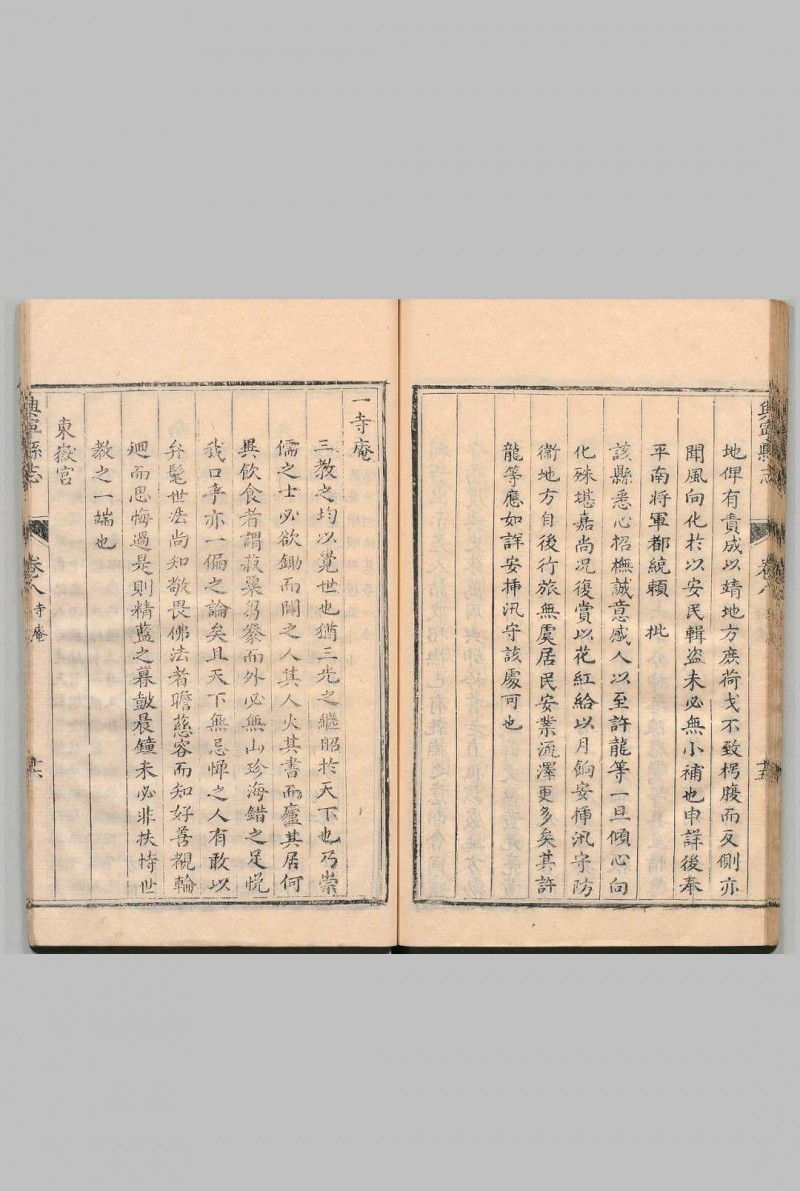 興寧縣志
卷八
廿五
地俾有責成以靖地方庶荷戈不致枵腹而反側亦
聞風向化於以安民輯盜未必無小補也申詳後奉
平南將軍都統賴　批
該縣悉心招撫誠意感人以至許龍等一旦傾心向
化殊堪嘉尚况復賞以花紅給以月餉安揷汛守防
衞地方自後行旅無虞居民安業流澤更多矣其許
龍等應如詳安揷汛守該處可也
一寺庵
三教之均以覺世也猶三光之繼昭於天下也乃崇
儒之士必欲鋤而闢之人其人火其書而廬其居何
異飲食者謂菽粟芻豢而外必無山珍海錯之足悅
我口亭亦一偏之論矣且天下無忌憚之人有敢以
弁髦世法尚知敬畏佛法者瞻慈容而知好善覩輪
迴而思悔過是則精藍之暮皷晨鐘未必非扶持世
教之一端也
東嶽宮
興寧縣志
卷八
寺庵
廿六